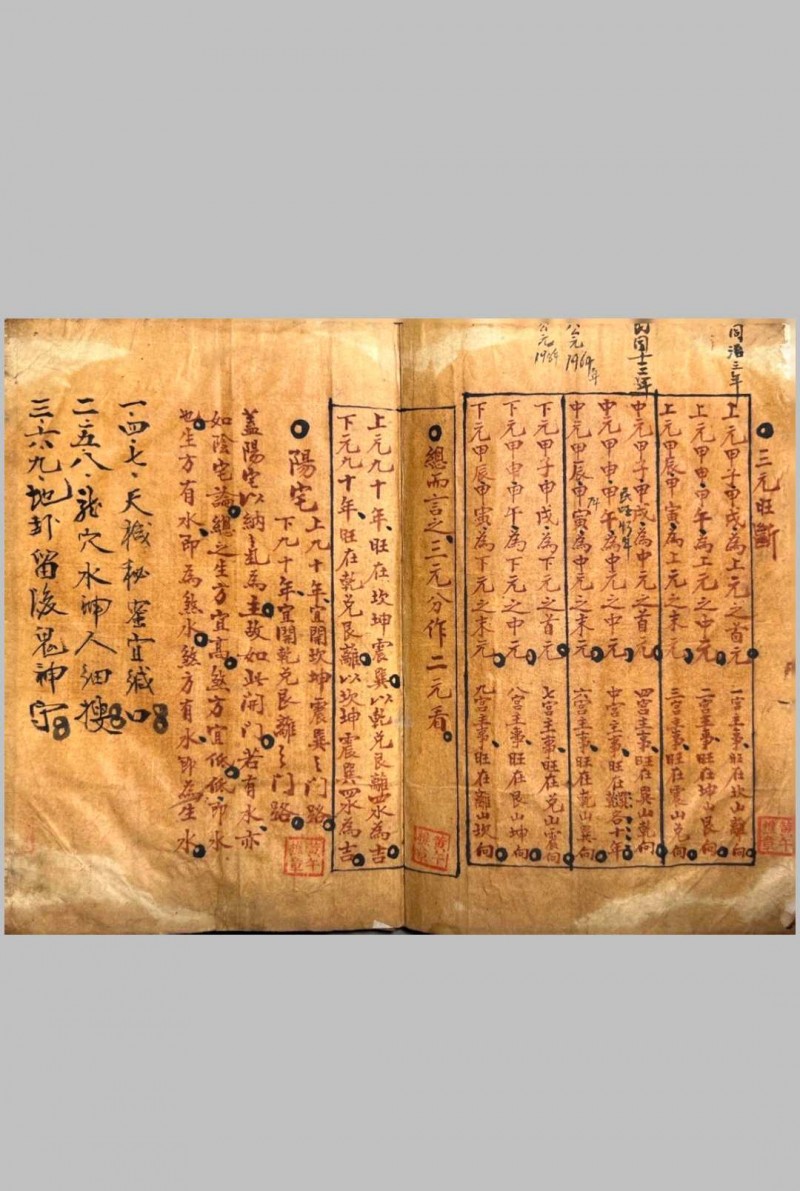 同治三年
三元旺斷
上元甲子甲戌為上元之首元 一宮主事旺在坎山離向
上元甲申甲午為上元之中元 二宮主事旺在坤山艮向
上元甲辰甲寅為上元之末元 三宮主事旺在震山兌向
民國十三年
中元甲子甲戌為中元之首元 四宮主事旺在巽山乾向
中元甲申甲午為中元之中元 中宮主事旺在 各十年
中元甲辰甲寅為中元之末元 六宮主事旺在乾山巽向
公元1984年
下元甲子甲戌為下元之首元 七宮主事旺在兌山震向
下元甲申甲午為下元之中元 八宮主事旺在艮山坤向
下元甲辰甲寅為下元之末元 九宮主事旺在離山坎向
總而言之三元分作二元看
上元九十年旺在坎坤震巽以乾兌艮離四水為吉
下元九十年旺在乾兌艮離以坎坤震巽四水為吉
陽宅
上九十年宜開坎坤震巽之門路
下九十年宜開乾兌艮離之門路
蓋陽宅以納氣為主故如此開門若有水亦
如陰宅論總之生方宜高煞方宜低低即水
也生方有水即為煞水煞方有水即為生水
一四七天機秘密宜緘口
二五八龍穴水神人細搜
三六九地卦留後鬼神守